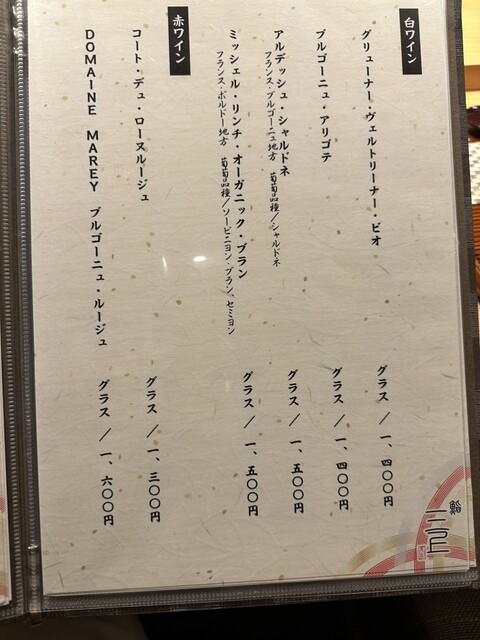 白ワイン
グリューナー・ヴェルトリーナー・ビオ
グラス／一、四〇〇円
ブルゴーニュ・アリゴテ
グラス／一、四〇〇円
アルデッシュ・シャルドネ
フランス・ブルゴーニュ地方　葡萄品種／シャルドネ
グラス／一、五〇〇円
ミッシェル・リンチ・オーガニック・ブラン
フランス・ボルドー地方　葡萄品種／ソービニヨン・ブラン、セミヨン
グラス／一、五〇〇円
赤ワイン
コート・デュ・ローヌルージュ
グラス／一、三〇〇円
DOMAINE MAREY ブルゴーニュ・ルージュ
グラス／一、六〇〇円
鮨